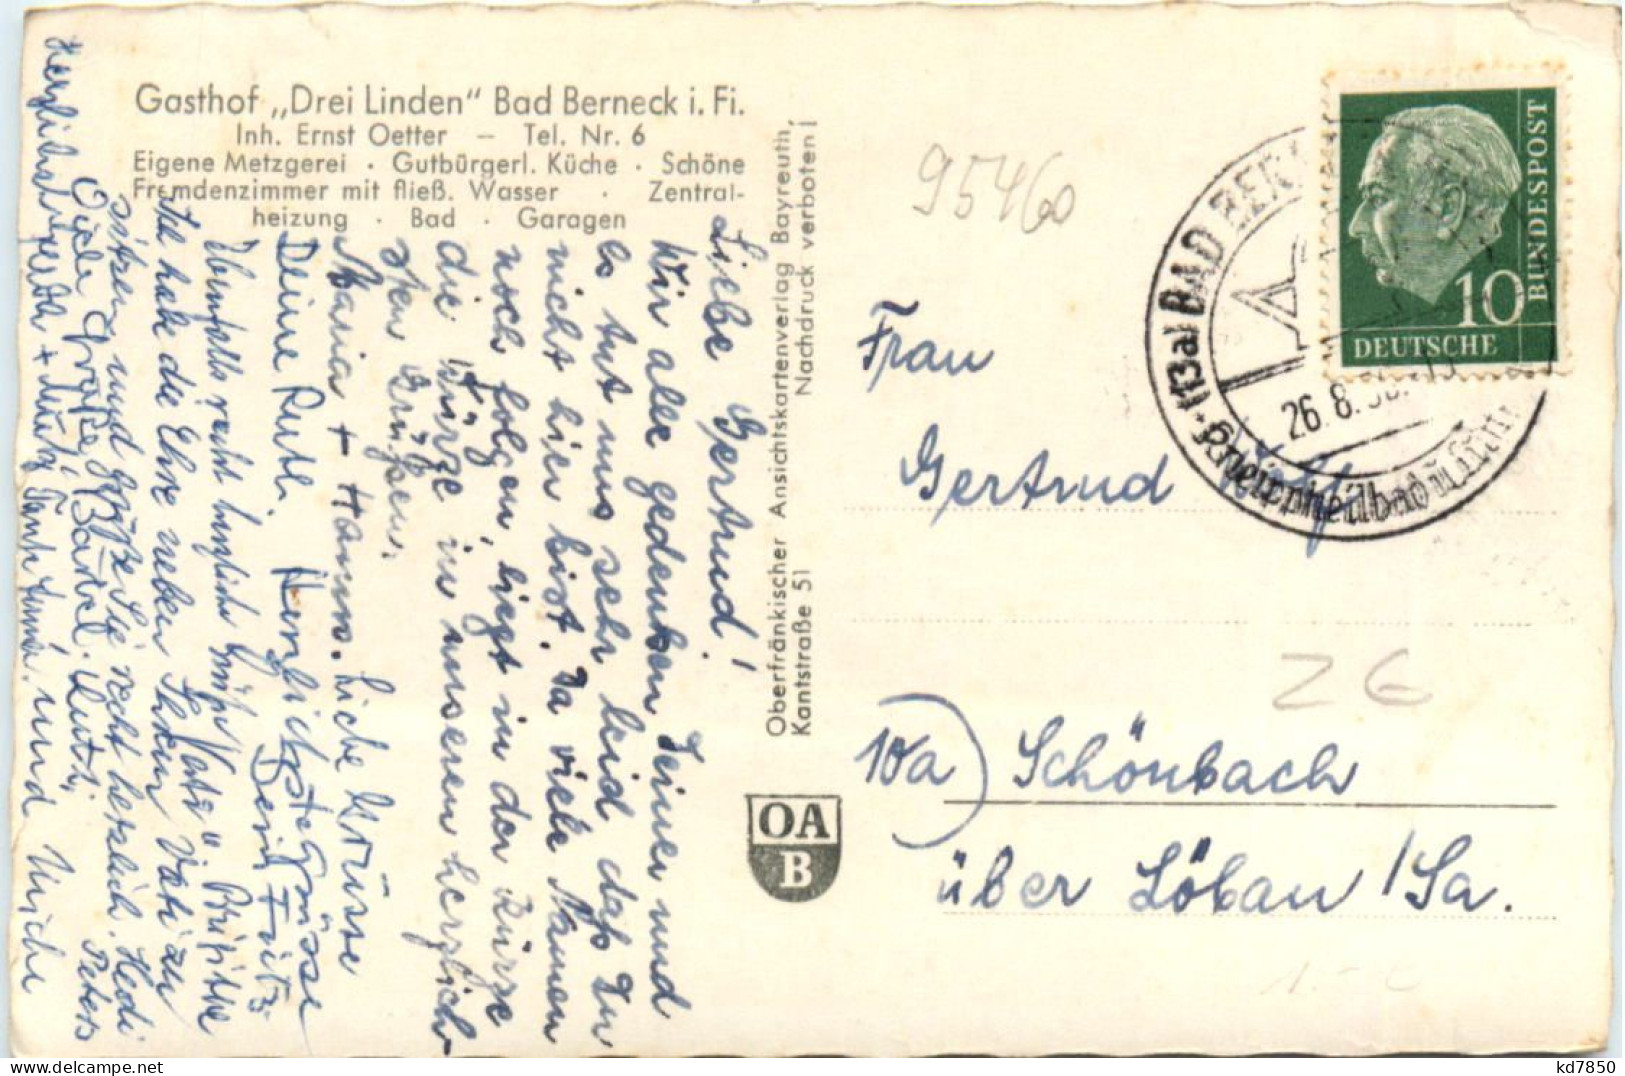 Gasthof „Drei Linden“ Bad Berneck i. Fi.
Inh. Ernst Oetter – Tel. Nr. 6
Eigene Metzgerei · Gutbürgerl. Küche · Schöne
Fremdenzimmer mit fließ. Wasser · Zentral-
heizung · Bad · Garagen
Liebe Gertrud!
Wir alle gedenken Deiner und
es tut uns sehr leid daß Du
nicht hier bist. Da viele Namen
noch folgen, liegt in der Kürze
die Würze in unseren herzlich-
sten Grüßen.
Maria + Hann. Liebe Grüsse
Deine Ruth. Herzlichste Grüsse
Dein Fritz
Ebenfalls recht herzliche Grüße
Ich habe die Ehre neben Ihrem Vati zu
sitzen und grüße Sie recht herzlich. Hedi
Viele Grüße Peters
Herzlichst und Ulrike
Oberfränkischer Ansichtskartenverlag Bayreuth,
Kantstraße 51 Nachdruck verboten!
OA
B
95460
BAD BER
26.8.
Kneippheilbad u.
10
DEUTSCHE
BUNDESPOST
Frau
Gertrud
10a) Schönbach
über Löbau/Sa.
kd7850